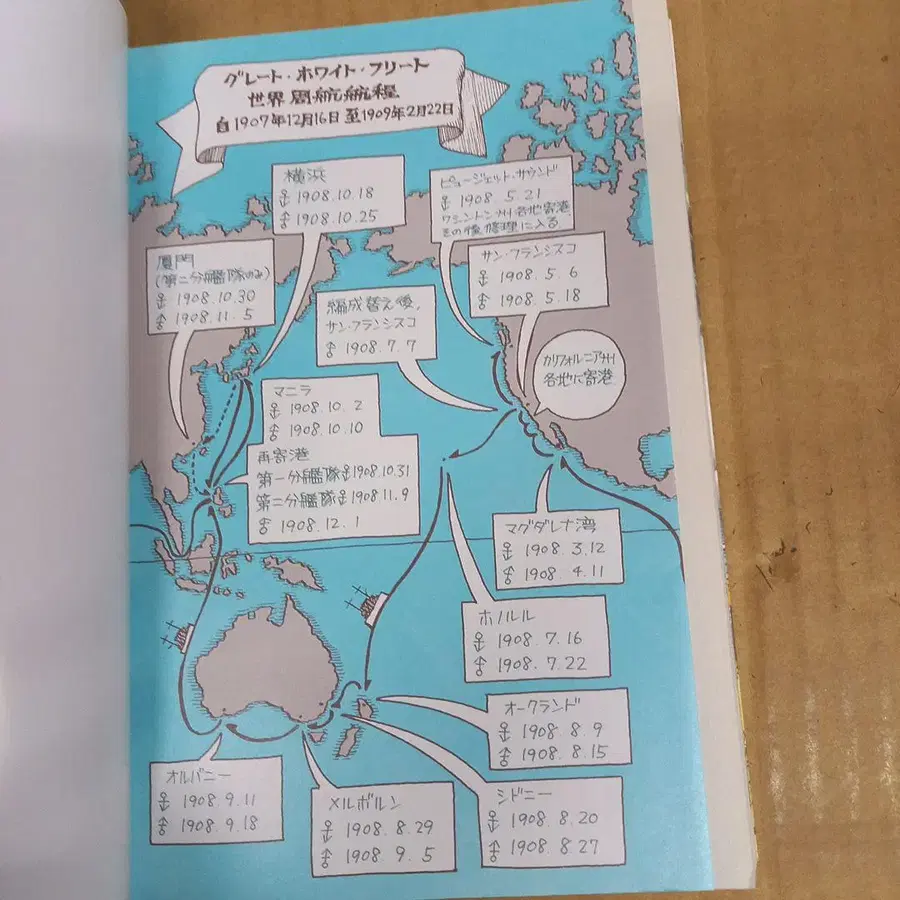 グレート・ホワイト・フリート
世界周航航程
自1907年12月16日 至1909年2月22日
横浜
⚓ 1908.10.18
⛢ 1908.10.25
ピュージェット・サウンド
⚓ 1908. 5.21
ワシントン州各地寄港
その後修理に入る
廈門
(第二分艦隊のみ)
⚓ 1908.10.30
⛢ 1908.11. 5
サン・フランシスコ
⚓ 1908. 5. 6
⛢ 1908. 5.18
編成替え後,
サン・フランシスコ
⛢ 1908. 7. 7
カリフォルニア州
各地に寄港
マニラ
⚓ 1908.10. 2
⛢ 1908.10.10
再寄港
第一分艦隊⚓1908.10.31
第二分艦隊⚓1908 11. 9
⛢ 1908.12. 1
マグダレナ湾
⚓ 1908. 3.12
⛢ 1908. 4.11
ホノルル
⚓ 1908. 7.16
⛢ 1908. 7.22
オークランド
⚓ 1908. 8. 9
⛢ 1908. 8.15
オルバニー
⚓ 1908. 9.11
⛢ 1908. 9.18
メルボルン
⚓ 1908. 8.29
⛢ 1908. 9. 5
シドニー
⚓ 1908. 8.20
⛢ 1908. 8.27